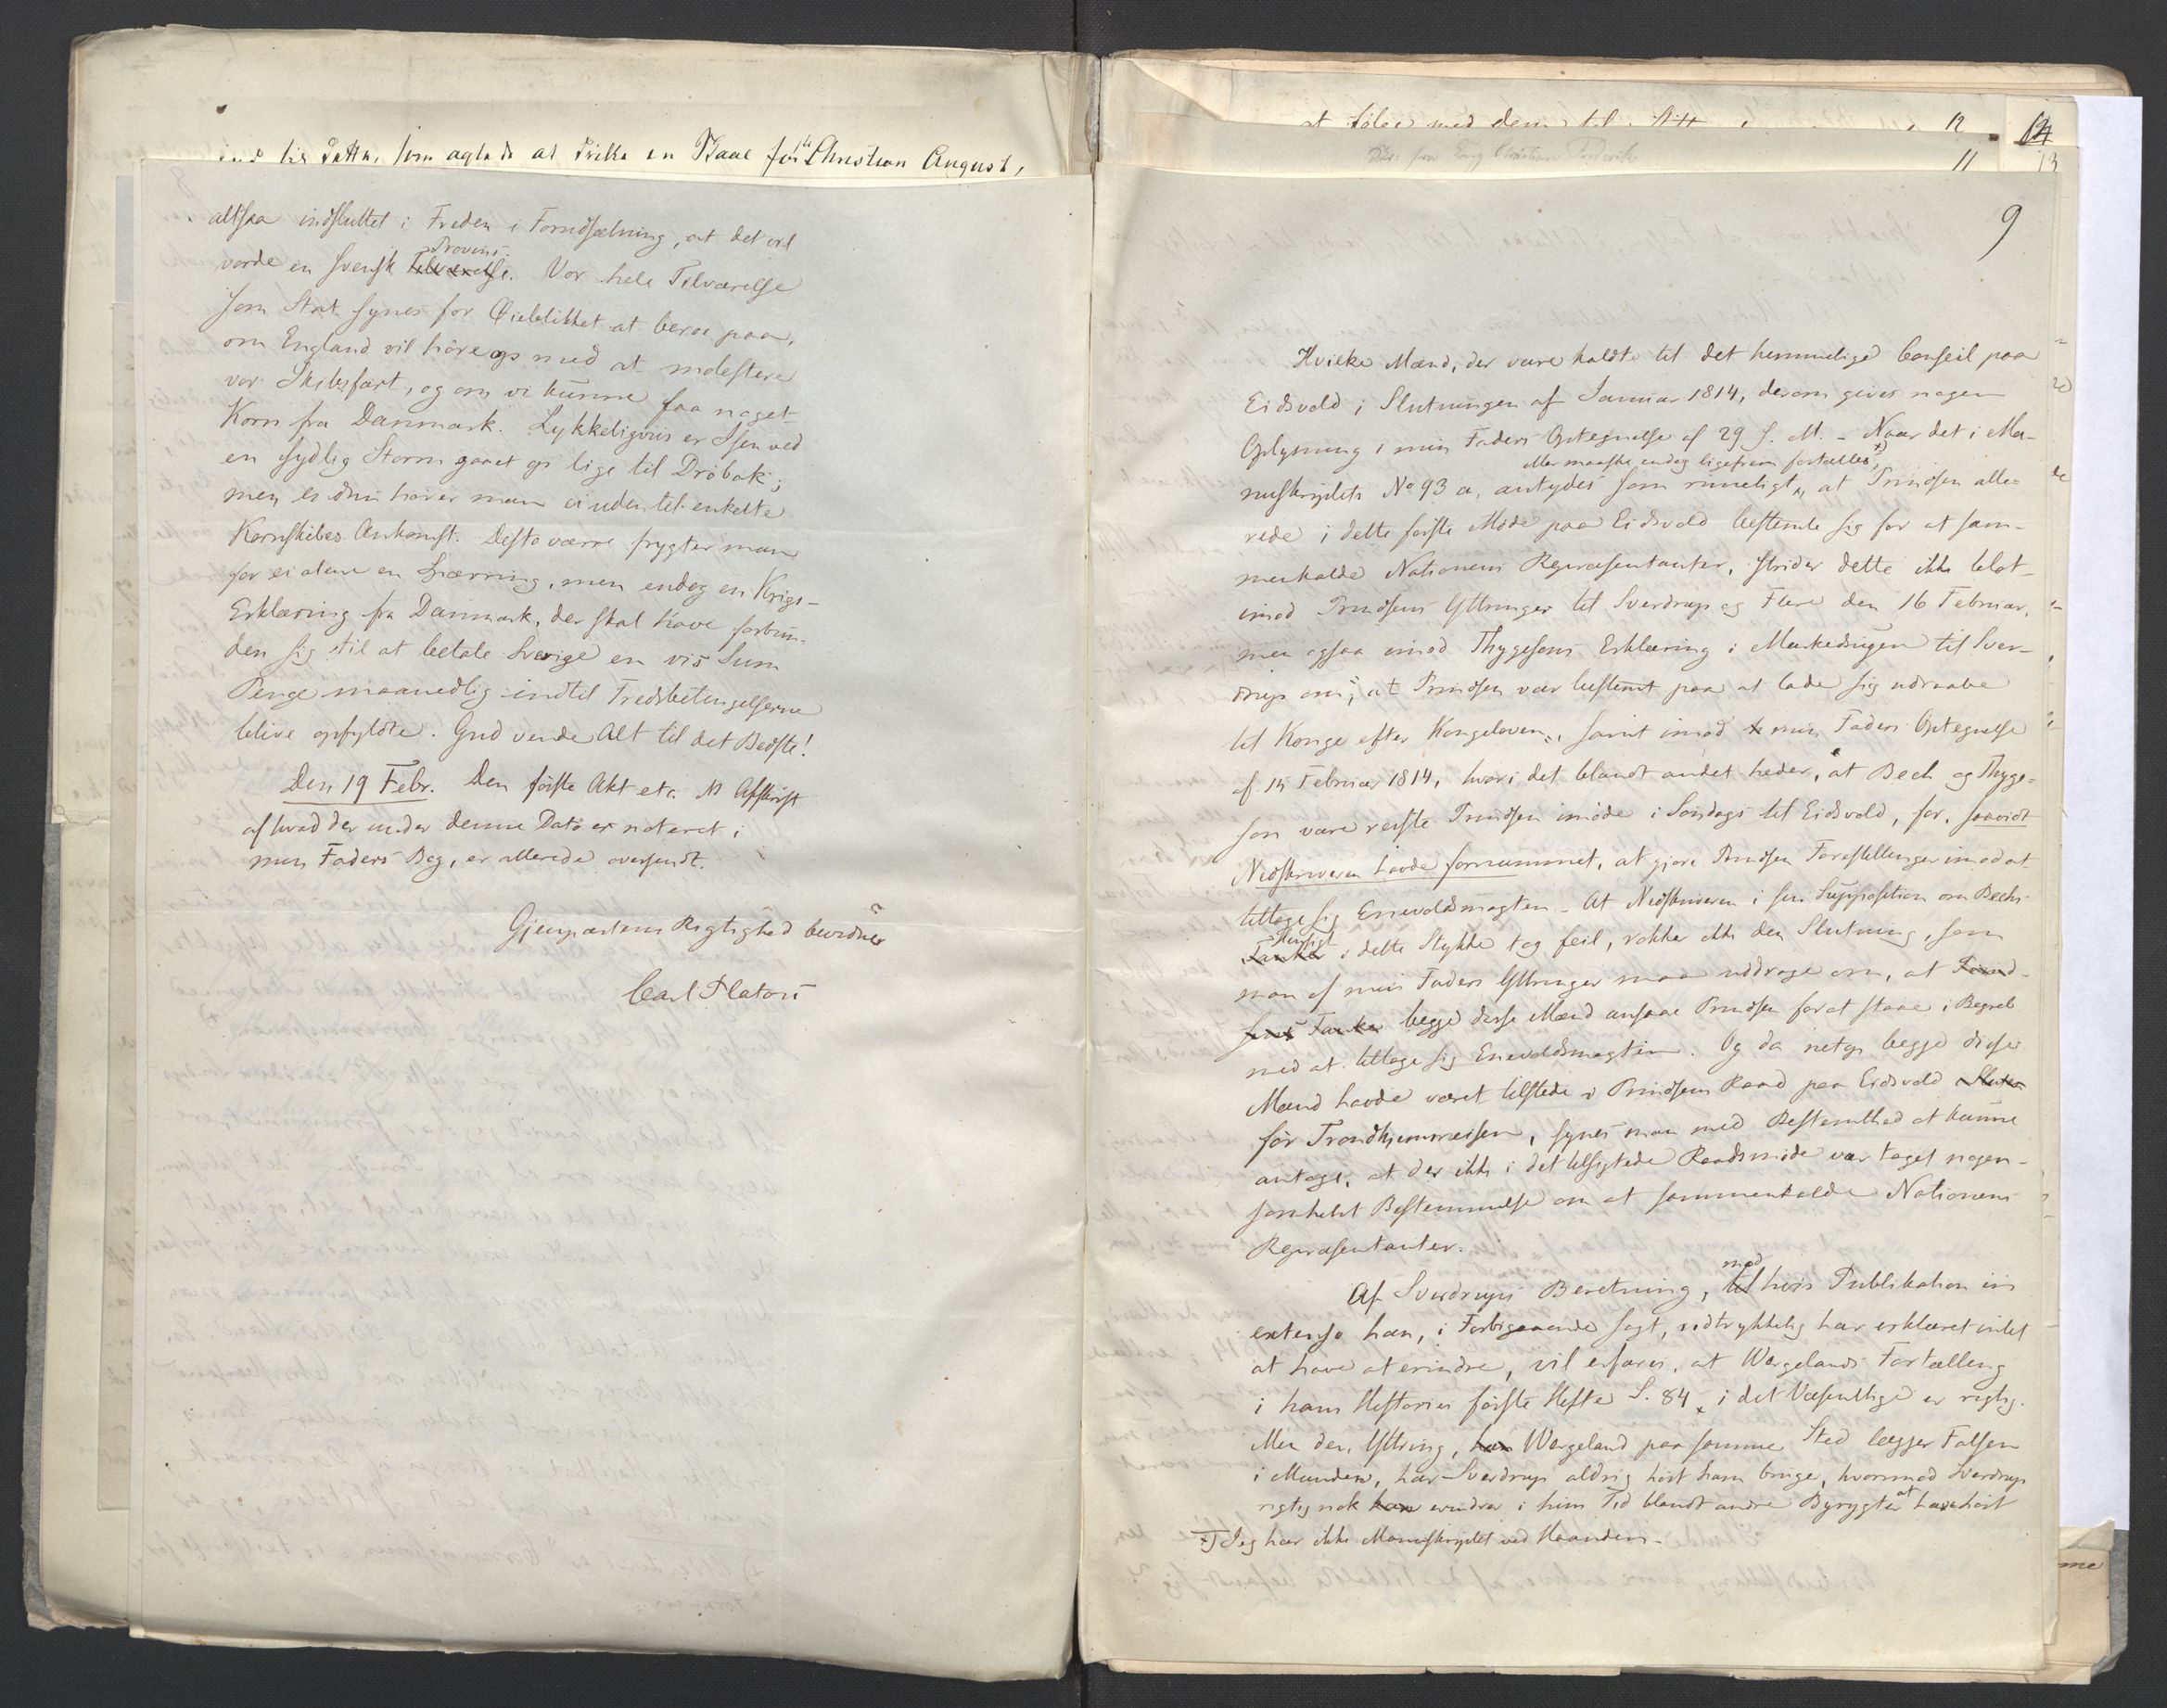 som agtede at drikke en Skaal for Christian August,
altsaa indsluttet i Freden i Forudsætning, at det vil
vorde en svensk Tilværelse. Provins. Vor hele Tilværelse
som Stat synes for Øieblikket at beroe paa,
om England vil høre op med at molestere
vor Skibsfart, og om vi kunne faa noget
Korn fra Danmark. Lykkeligviis er Isen ved
en sydlig Storm gaaet op lige til Drøbak;
men endnu hører man ei uden til enkelte
Kornskibes Ankomst. Desto værre frygter man
for ei alene en Spærring, men endog en Krigs-
Erklæring fra Danmark, der skal have forbun-
den sig til at betale Sverige en vis Sum
Penge maanedlig indtil Fredsbetingelserne
blive opfyldte. Gud vende Alt til det Bedste!
Den 19 Febr. Den første Akt etc. NB Afskrift
af hvad der under denne Dato er noteret i
min Faders Bog, er allerede oversendt.
Gjenpartens Rigtighed bevidner
Carl Platou
at følge med dem til
12
14
11
13
9
Hvilke Mænd, der vare kaldte til det hemmelige Conseil paa
Eidsvold i Slutningen af Januar 1814, derom gives nogen
Oplysning i min Faders Optegnelse af 29 s. M. - Naar det i Ma-
eller maaske endog ligefrem fortælles +)
nuskriptets No 93 a, antydes som rimeligt, at Prindsen alle-
rede i dette første Møde paa Eidsvold bestemte sig for at sam-
menkalde Nationens Repræsentanter, strider dette ikke blot
imod Prindsens Yttringer til Sverdrup og Flere den 16 Februar,
men ogsaa imod Thygesons Erklæring i Markedsugen til Sver-
drup om, at Prindsen var bestemt paa at lade sig udraabe
til Konge efter Kongeloven, samt imod min Faders Optegnelse
af 15 Februar 1814, hvori det blandt andet heder, at Bech og Thyge-
son vare reiste Prindsen imøde i Søndags til Eidsvold, for, saavidt
Nedskriveren havde fornummet, at gjøre Prindsen Forestillinger imod at
tiltage sig Enevoldsmagten. - At Nedskriveren i sin Supposition om Bechs
Hensigt
Tanker i dette Stykke tog feil, rokker ikke den Slutning, som
man af min Faders Yttringer maa uddrage om, at Prind-
sens Tanker begge disse Mænd ansaae Prindsen for at staae i Begreb
med at tiltage sig Enevoldsmagten. Og da netop begge disse
Mænd havde været tilstede i Prindsens Raad paa Eidsvold
før Trondhjemsreisen, synes man med Bestemthed at kunne
antage, at der ikke i det tilsigtede Raadsmøde var taget nogen-
somhelst Bestemmelse om at sammenkalde Nationens
Repræsentanter.
mod
Af Sverdrups Beretning, til hvis Publikation in
extenso han, i Forbigaaende sagt, udtrykkelig har erklæret intet
at have at erindre, vil erfares, at Wergelands Fortælling
i hans Histories første Hefte S. 84 i det Væsentlige er rigtig.
Men den Yttring, han Wergeland paa samme Sted lægger Falsen
i Munden, har Sverdrup aldrig hørt ham bruge, hvorimod Sverdrup
rigtignok han erindrer i hiin Tid blandt andre Byrygter at have hørt
+) Jeg har ikke Manuskriptet ved Haanden.